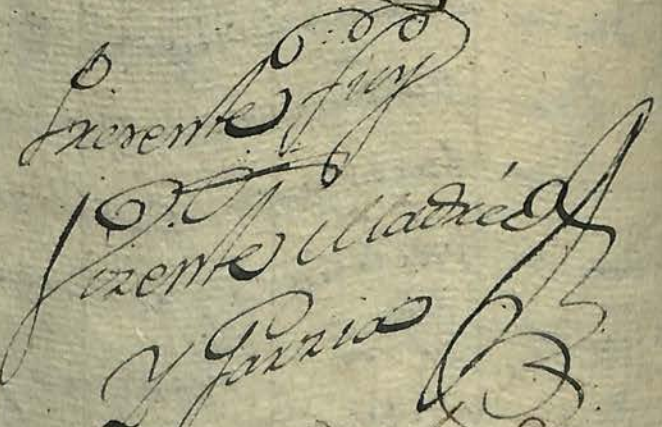 Prerente fuy
Vizente Madrid
Y Garzia